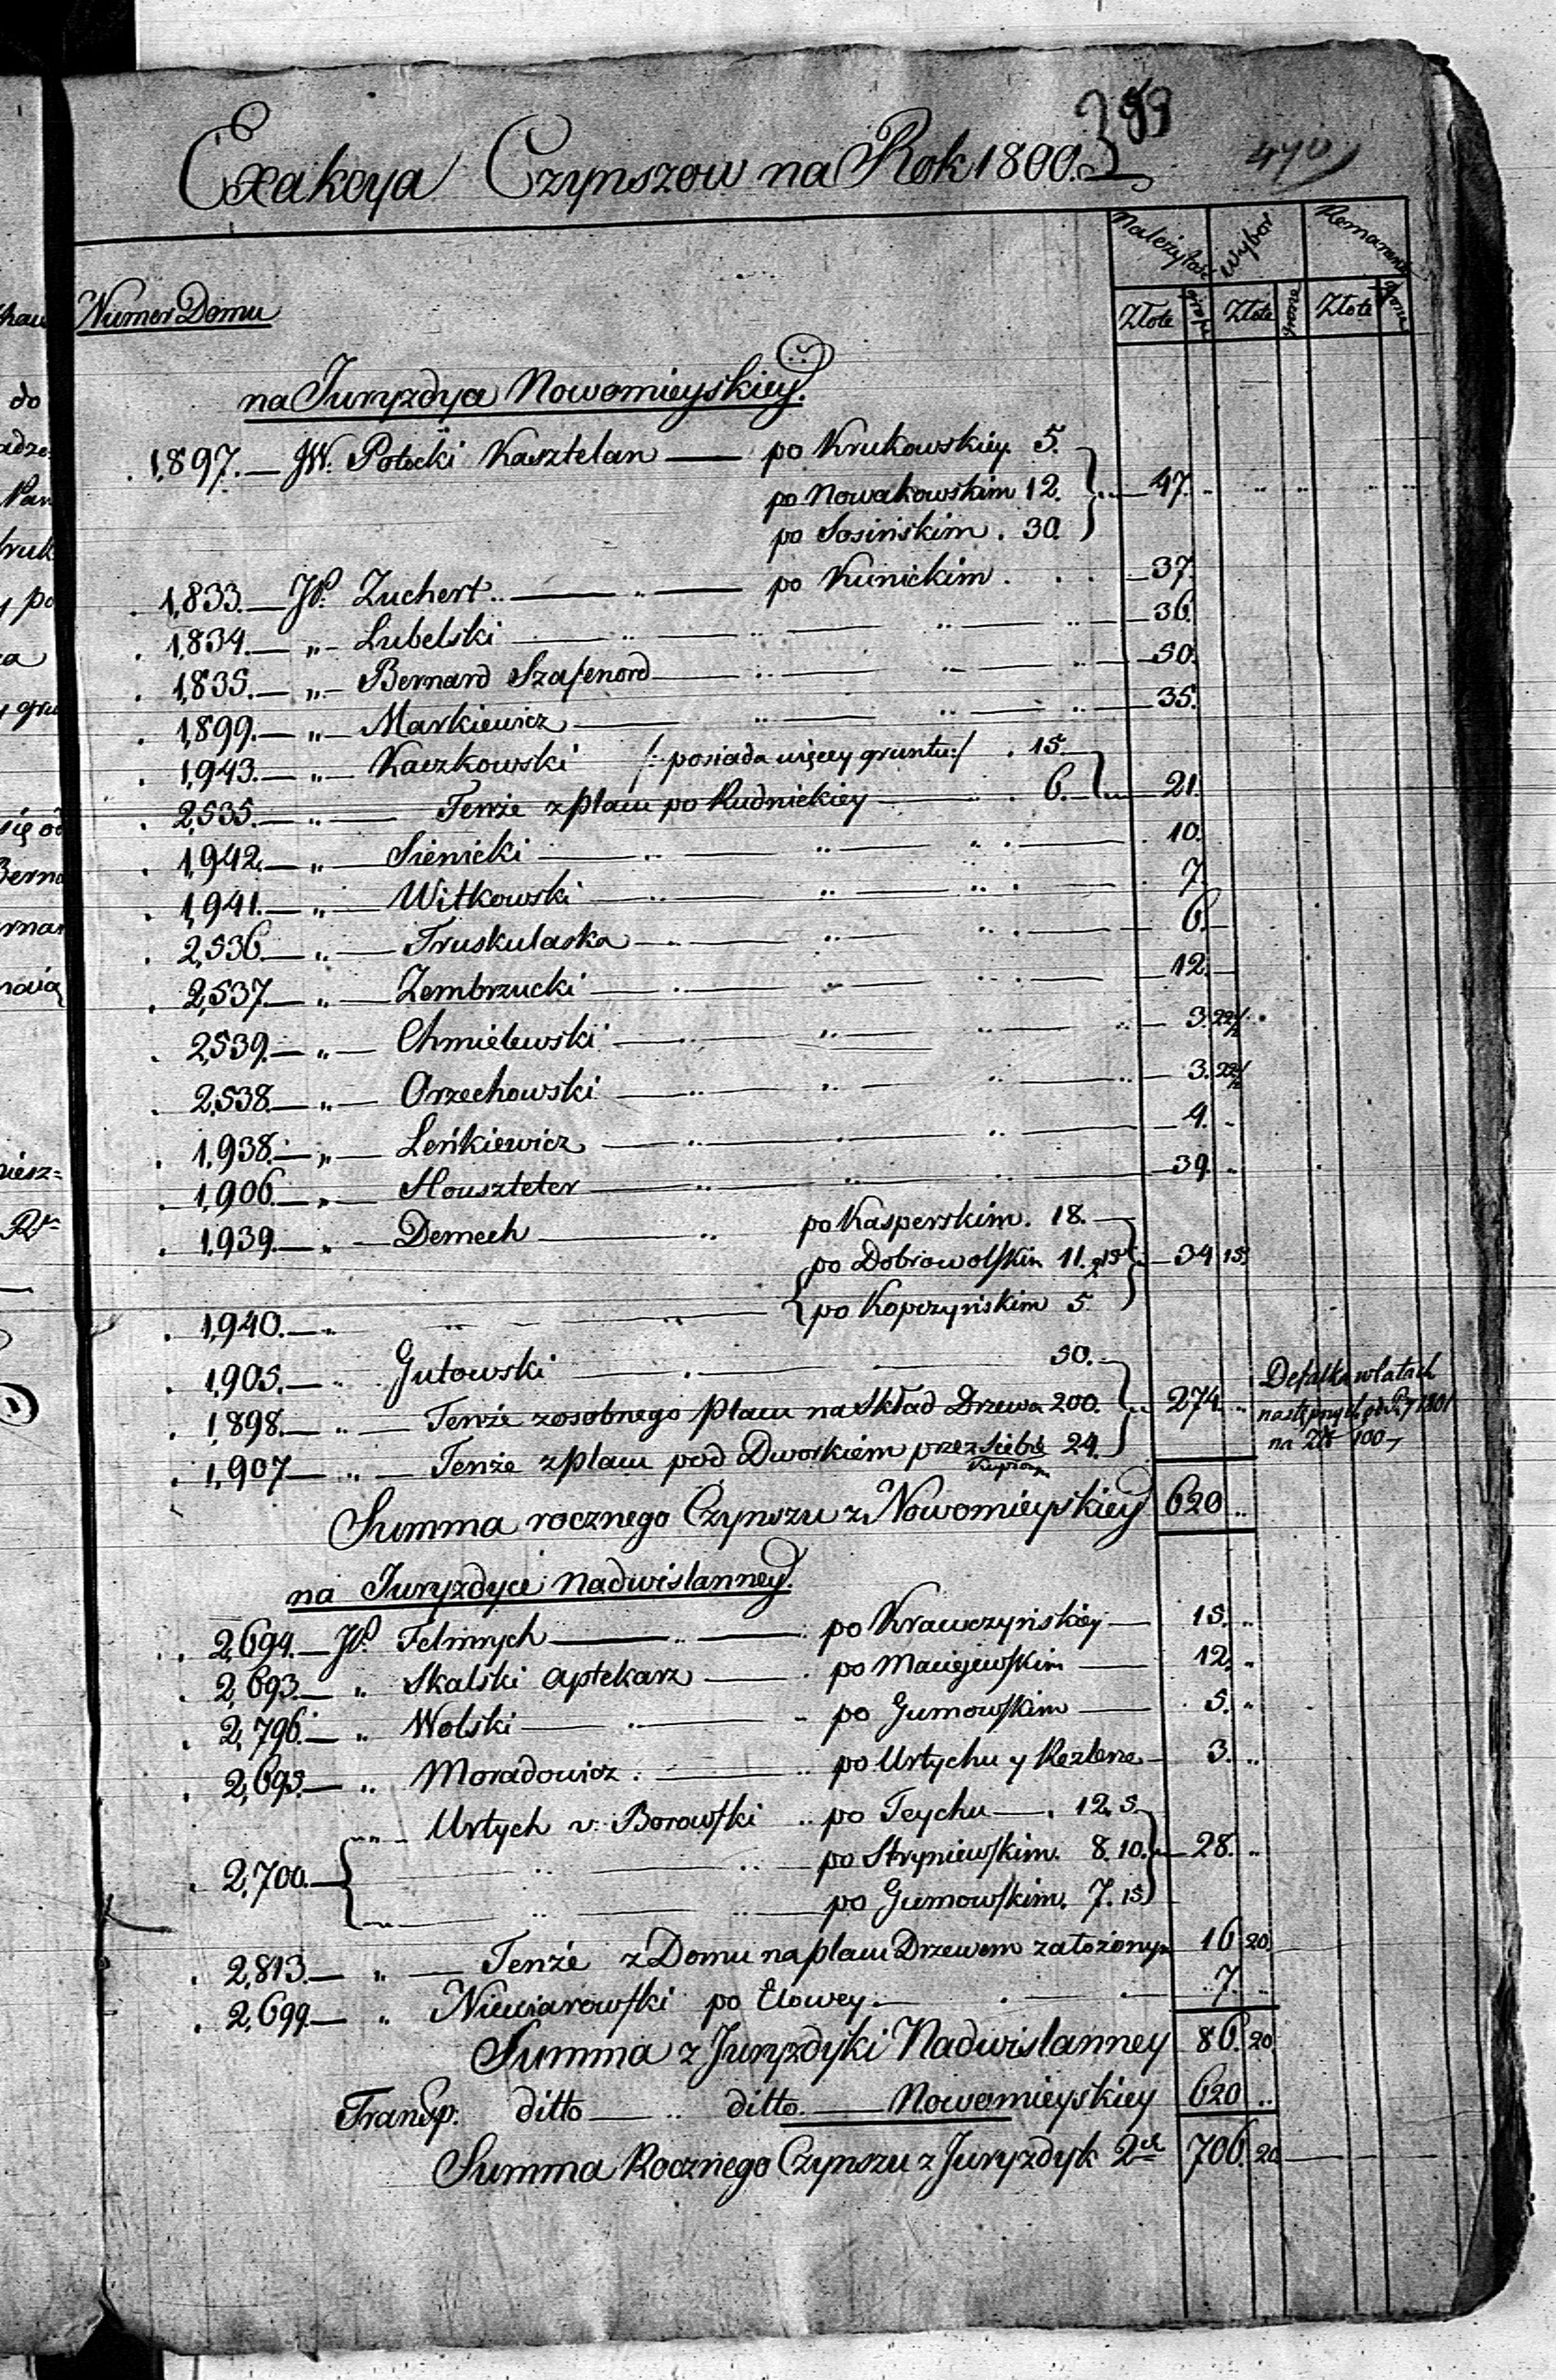 Exakcya Czynszow na Rok 1800.
470
Należytość Wybór Remanent
Numer Domu
Złote grosze Złote grosze Złote grosze
na Juryzdyce Nowomieyskiey.
1,897. — JW. Potocki Kasztelan — po Krukowskiey 5.
po Nowakowskim 12. } — 47. ..
po Sosińskim . 30.
1,833. — JP. Zuchert .. — po Kunickim . . . — 37.
1,834. — „ — Lubelski — 36.
1,835. — „ — Bernard Szafenord — 50.
1,899. — „ — Markiewicz — 35.
1,943. — „ — Kaczkowski /: posiada więcey gruntu :/ . 15.
2,535. — „ — Tenże z placu po Rudnickiey — 6. } — 21.
1,942. — „ — Sienicki — 10.
1,941. — „ — Witkowski — 7.
2,536. — „ — Truskulaska — 6.
2,537. — „ — Zembrzucki — 12.
2,539. — „ — Chmielewski — 3. 22 1/2
2,538. — „ — Orzechowski — 3. 22 1/2
1,938. — „ — Leńkiewicz — 4. ..
1,906. — „ — Houszteter — 39. ..
1,939. — „ — Demech — po Kasperskim. 18.
po Dobrowolskim 11. g 15 } — 34 15
1,940. — „ — { po Kopczyńskim 5.
1,905. — „ Gutowski — 50.
1,898. — „ — Tenże z osobnego placu na Skład Drzewa 200. } .. 274. ..
1,907 — „ — Tenże z placu pod Dworkiem przez siebie 24.
kupionym
Defalka w latach
następnych od R. 1801
na Zł 100
Summa rocznego Czynszu z Nowomieyskiey 620 ..
na Juryzdyce Nadwislanney.
2,694. — JP. Felinnych — po Krawczyńskiey — 15. ..
2,693. — „ Skalski Aptekarz — po Maciejewskim — 12. ..
2,796. — „ Wolski — po Gumowskim — 5. ..
2,695. — „ Moradowicz . — po Urtychu y Kezlerze — 3. ..
Urtych v. Borowski .. po Teychu — . 12. 5.
2,700. — { po Stryniewskim. 8. 10. } — 28. ..
po Gumowskim. 7. 15
2,813. — „ — Tenże z Domu na placu Drzewem założonym 16 20
2,699. — „ Niewiarowski po Elowey. — 7. ..
Summa z Juryzdyki Nadwislanney 86. 20
Transp. ditto — .. ditto. — Nowomieyskiey 620 ..
Summa Rocznego Czynszu z Juryzdyk 2ch 706. 20